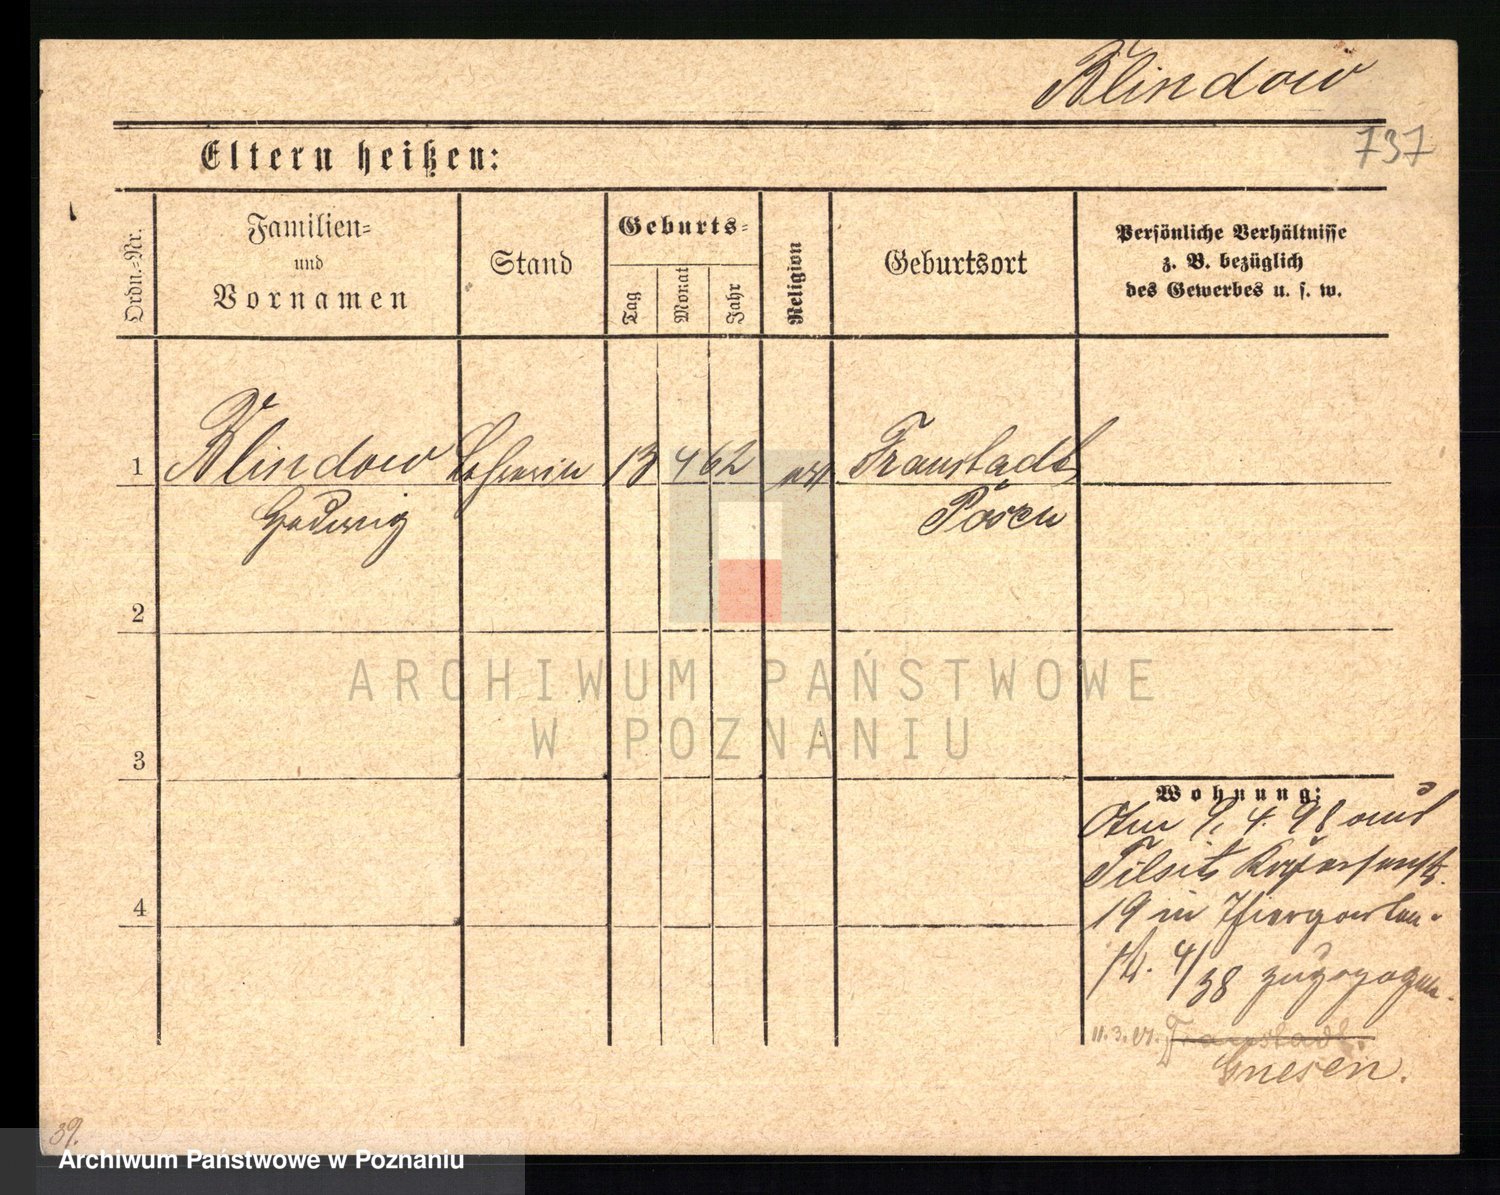 Blindow
737
Eltern heißen:
Ordn.-Nr.
Familien-
und
Vornamen
Stand
Geburts-
Tag
Monat
Jahr
Religion
Geburtsort
Persönliche Verhältnisse
z. B. bezüglich
des Gewerbes u. s. w.
1 Blindow Lehrerin 13 4 62 Fraustadt
Hedwig Posen
2
3
4
Wohnung:
Am 9. 4. 98 aus
Tilsit
19 in Thiergarten-
str. 4/38 zugezogen.
11.3.27. Fraustadt.
Gnesen.
39.
ARCHIWUM PAŃSTWOWE
W POZNANIU
Archiwum Państwowe w Poznaniu